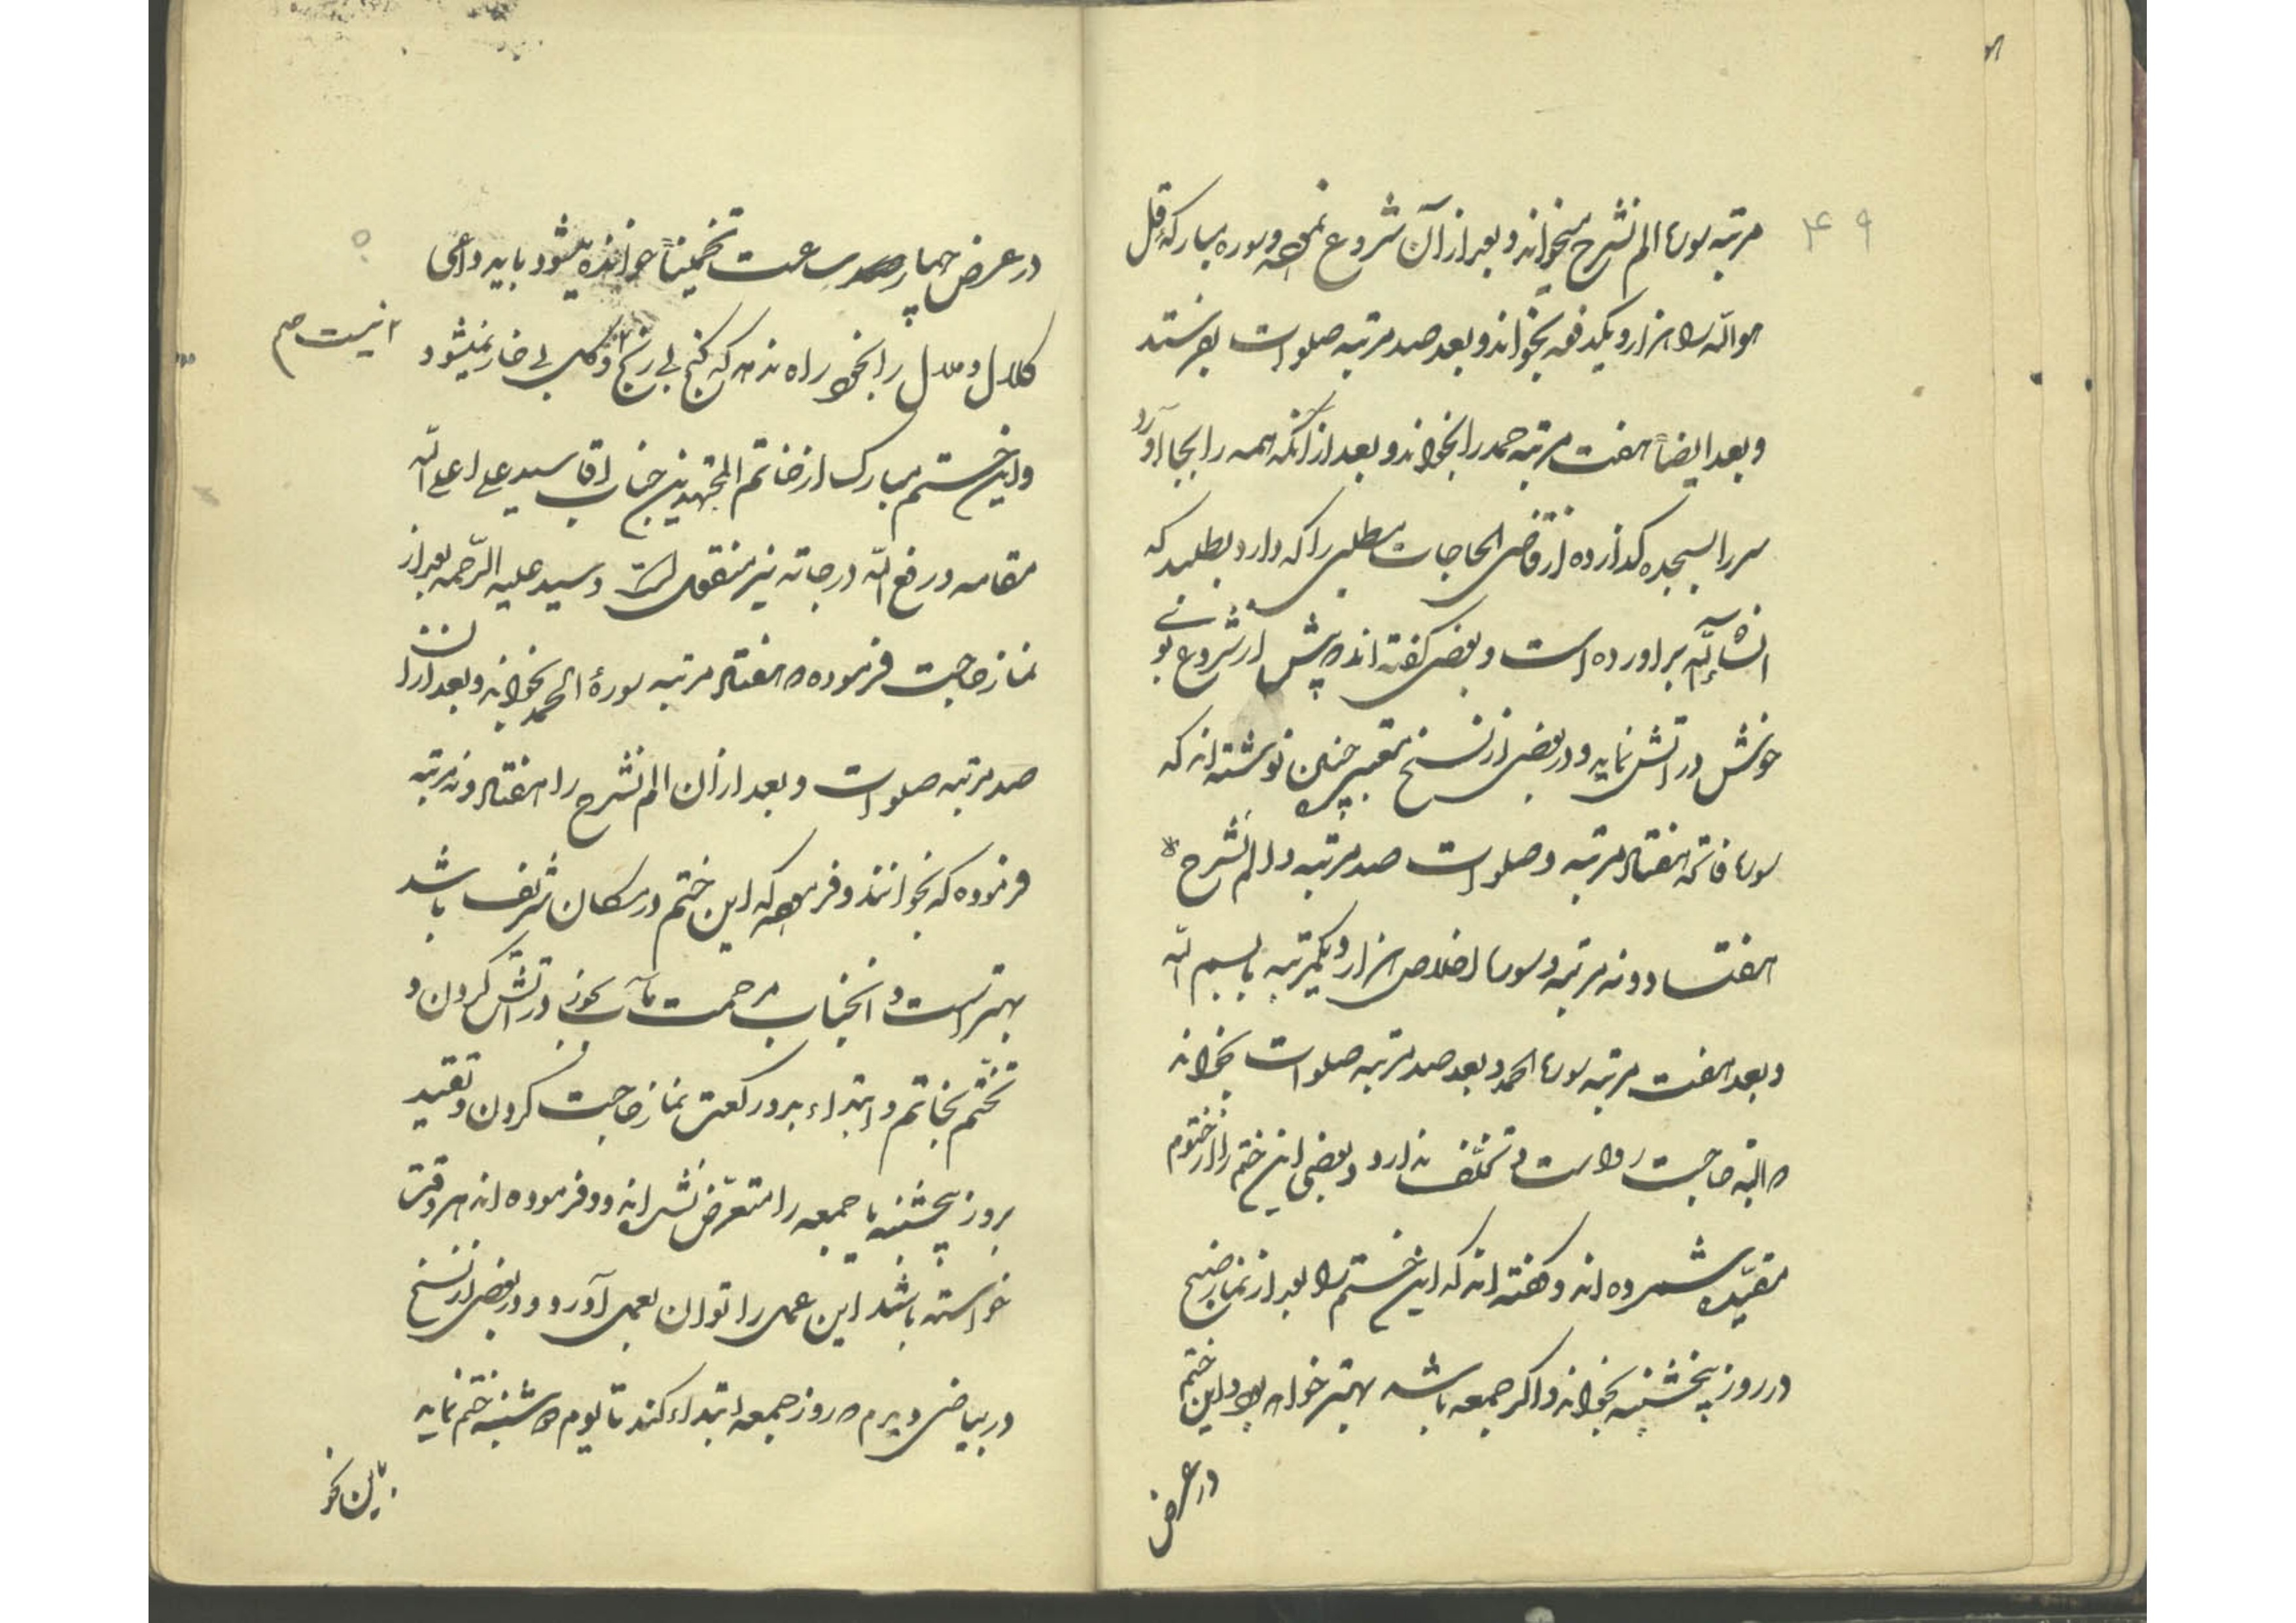 ۴۹
مرتبه سوره الم نشرح میخواند و بعد از آن شروع نموده سوره مبارکه قل
هو الله را هزار و یکدفعه بخواند و بعد صد مرتبه صلوات بفرستد
و بعد ایضاً هفت مرتبه حمد را بخواند و بعد از آنکه همه را بجا آورد
سر را بسجده گذارده از قاضی الحاجات مطلبی را که دارد بطلبد که
انشاء الله برآورده است و بعضی گفته اند پیش از شروع بوی
خوش در آتش نماید و در بعضی از نسخ معتبره چنین نوشته اند که
سوره فاتحه هفتاد مرتبه و صلوات صد مرتبه و الم نشرح
هفتاد و نه مرتبه و سوره اخلاص هزار و یکمرتبه با بسم الله
و بعد هفت مرتبه سوره الحمد و بعد صد مرتبه صلوات بخواند
البته حاجت رواست و تخلف ندارد و بعضی این ختم را از ختوم
مقیده شمرده اند و گفته اند که این ختم را بعد از نماز صبح
در روز پنجشنبه بخواند و اگر جمعه باشد بهتر خواهد بود و این ختم
در عرض
در عرض چهار ساعت تخمیناً خوانده میشود باید داعی
کلال و ملال را بخود راه ندهد که گنج بی رنج و گل بی خار نمیشود
نیست صم
و این ختم مبارک از خاتم المجتهدین جناب آقا سید علی اعلی الله
مقامه و رفع الله درجاته نیز منقول است و سید علیه الرحمه بعد از
نماز حاجت فرموده هفتاد مرتبه سورهٔ الحمد بخواند و بعد از آن
صد مرتبه صلوات و بعد از آن الم نشرح را هفتاد و نه مرتبه
فرموده که بخوانند و فرموده که این ختم در مکان شریف باشد
بهتر است و آنجناب مرحمت مآب بخور در آتش کردن و
تختم بخاتم و ابتداء بدو رکعت نماز حاجت کردن و تقیید
بروز پنجشنبه یا جمعه را متعرض نشده اند و فرموده اند هر وقت
خواسته باشند این عمل را توان بعمل آورد و در بعضی از نسخ
در بیاضی دیدم روز جمعه ابتداء کند تا یوم شنبه ختم نماید
باین نحو